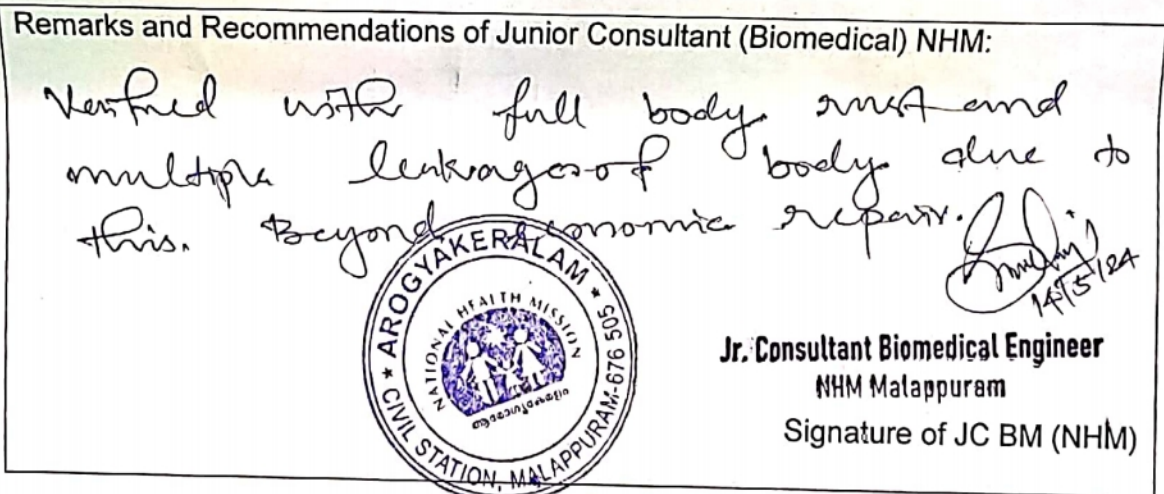 Remarks and Recommendations of Junior Consultant (Biomedical) NHM:
Verified with full body rust and
multiple leakages of body due to
this. Beyond economic repair.
14/5/24
★ AROGYAKERALAM ★
CIVIL STATION, MALAPPURAM-676 505
NATIONAL HEALTH MISSION
Jr. Consultant Biomedical Engineer
NHM Malappuram
Signature of JC BM (NHM)